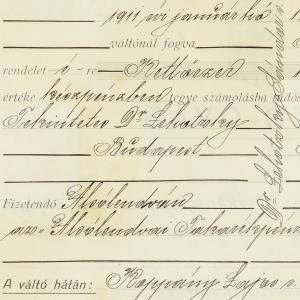 1911 évi január hó
váltónál fogva
rendelet é-re Kettőezer
értéke készpénzben tegye számolásba
Tekintetes Dr Lehotzky
Budapest
Fizetendő Alsólendván
az Alsólendvai Takarékpénz
A váltó hátán: Koppány Lajos s.
Dr Lehotzky Sándor s.